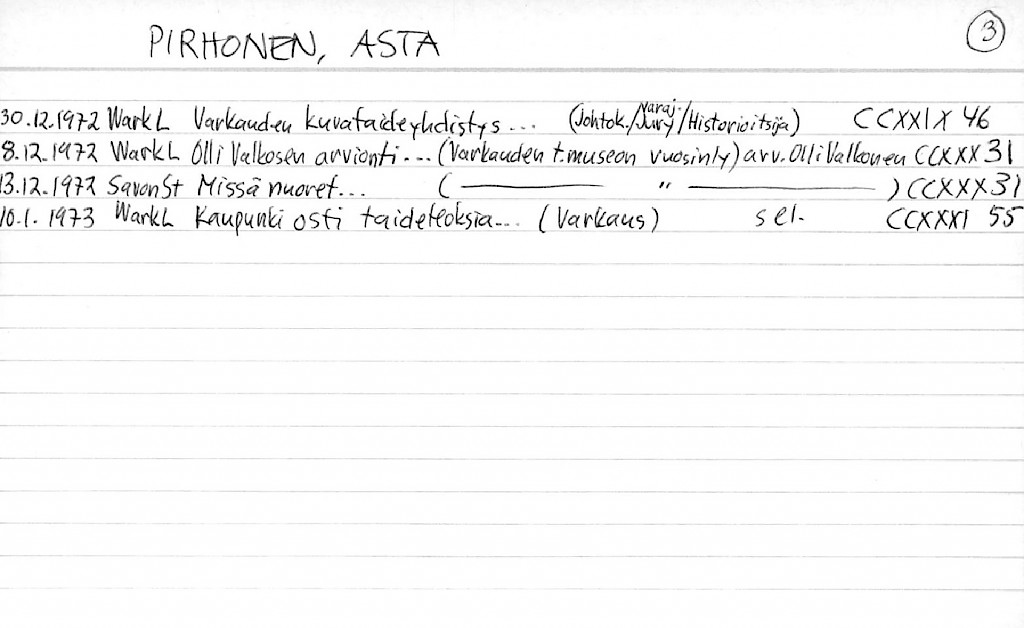 PIRHONEN, ASTA
3
30.12.1972 WarkL Varkauden kuvataideyhdistys... (Johtok./Varaj. Jury/Historioitsija) CCXXIX 46
8.12.1972 WarkL Olli Valkosen arviointi... (Varkauden t.museon vuosinly) arv. Olli Valkonen CCXXX 31
13.12.1972 SavonSt Missä nuoret... ( — " — ) CCXXX 31
10.1.1973 WarkL Kaupunki osti taideteoksia... (Varkaus) sel. CCXXXI 55